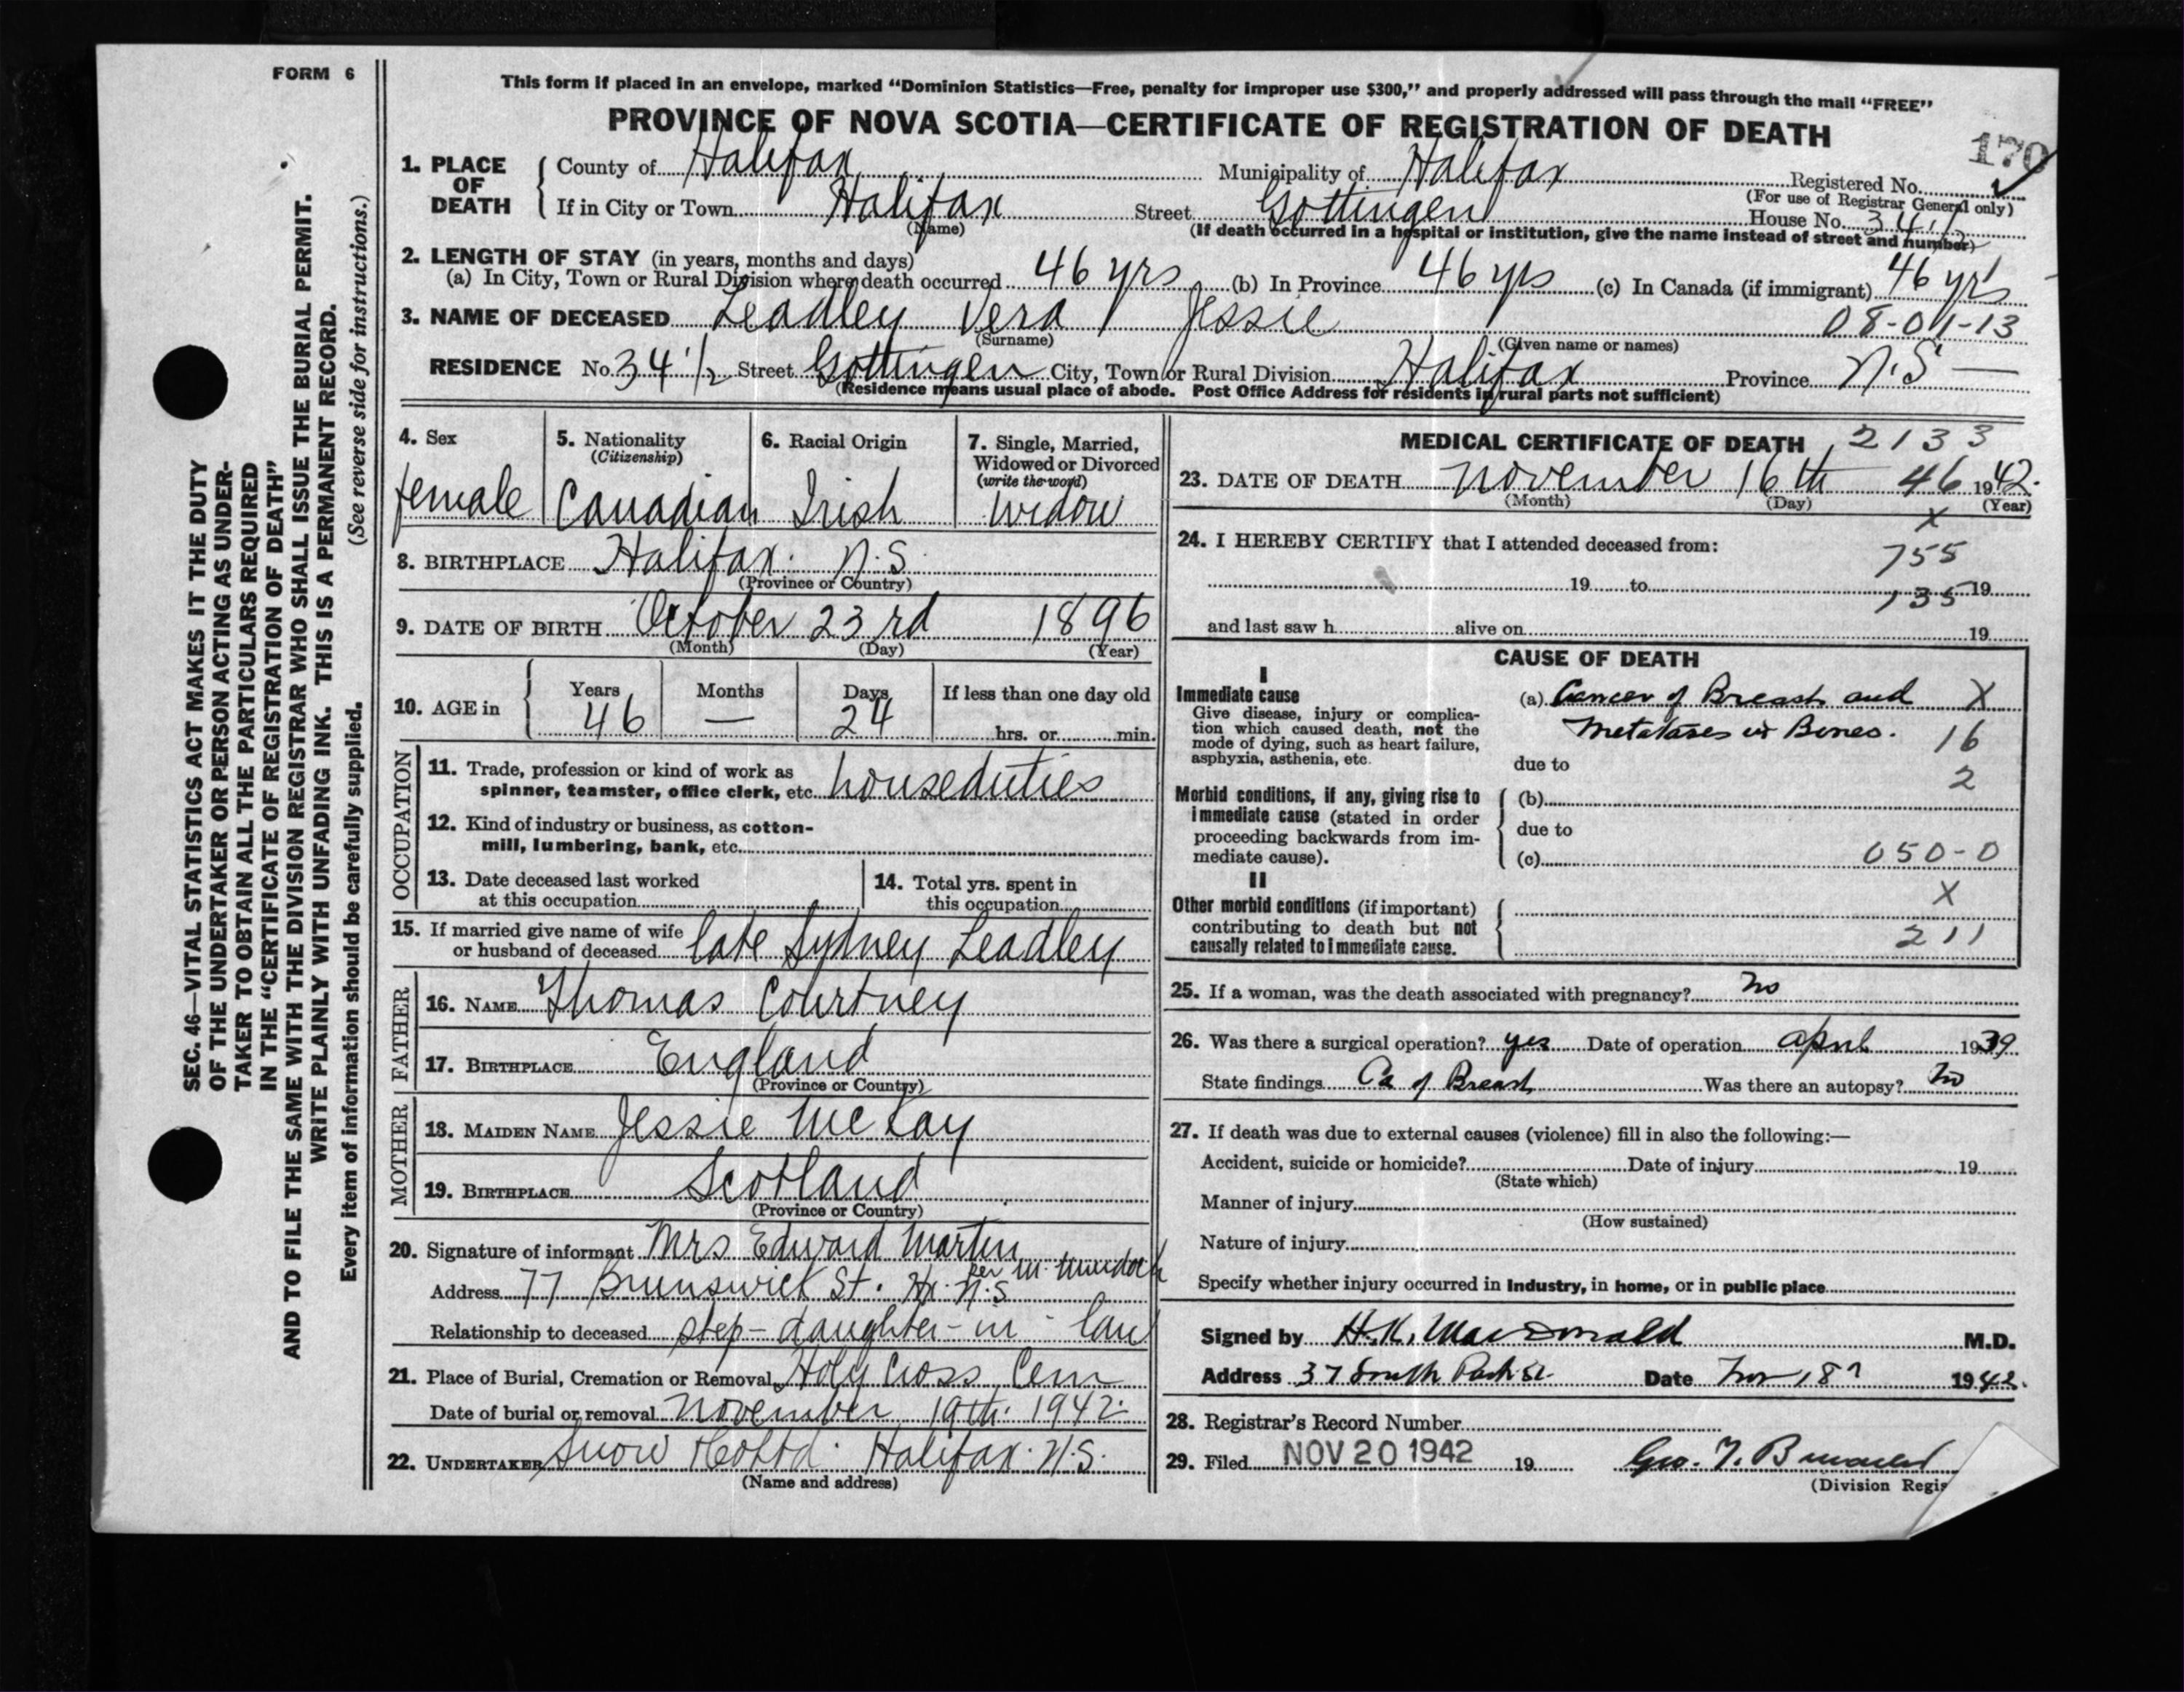 FORM 6
This form if placed in an envelope, marked “Dominion Statistics—Free, penalty for improper use $300,” and properly addressed will pass through the mail “FREE”
PROVINCE OF NOVA SCOTIA—CERTIFICATE OF REGISTRATION OF DEATH
170
1. PLACE OF DEATH County of Halifax Municipality of Halifax Registered No.
(For use of Registrar General only)
If in City or Town Halifax Street Gottingen House No. 34 1/2
(Name) (If death occurred in a hospital or institution, give the name instead of street and number)
2. LENGTH OF STAY (in years, months and days)
(a) In City, Town or Rural Division where death occurred 46 yrs (b) In Province 46 yrs (c) In Canada (if immigrant) 46 yrs
3. NAME OF DECEASED Leadley Vera Jessie 08-01-13
(Surname) (Given name or names)
RESIDENCE No. 34 1/2 Street Gottingen City, Town or Rural Division Halifax Province N.S —
(Residence means usual place of abode. Post Office Address for residents in rural parts not sufficient)
4. Sex 5. Nationality (Citizenship) 6. Racial Origin 7. Single, Married, Widowed or Divorced (write the word)
female Canadian Irish widow
8. BIRTHPLACE Halifax. N.S.
(Province or Country)
9. DATE OF BIRTH October 23rd 1896
(Month) (Day) (Year)
10. AGE in Years Months Days If less than one day old
46 — 24 hrs. or min.
OCCUPATION
11. Trade, profession or kind of work as
spinner, teamster, office clerk, etc. houseduties
12. Kind of industry or business, as cotton-
mill, lumbering, bank, etc.
13. Date deceased last worked
at this occupation
14. Total yrs. spent in
this occupation
15. If married give name of wife
or husband of deceased late Sydney Leadley
FATHER
16. NAME Thomas Courtney
17. BIRTHPLACE England
(Province or Country)
MOTHER
18. MAIDEN NAME Jessie McKay
19. BIRTHPLACE Scotland
(Province or Country)
20. Signature of informant Mrs Edward Martin
per M. Murdoch
Address 77 Brunswick St. Hx. N.S
Relationship to deceased step-daughter-in-law
21. Place of Burial, Cremation or Removal Holy Cross Cem
Date of burial or removal November 19th. 1942.
22. UNDERTAKER Snow Halifax. N.S.
(Name and address)
MEDICAL CERTIFICATE OF DEATH 2133
23. DATE OF DEATH November 16th 46 1942.
(Month) (Day) (Year)
X
24. I HEREBY CERTIFY that I attended deceased from:
755
19 to 19
135
and last saw h alive on 19
CAUSE OF DEATH
I
Immediate cause
Give disease, injury or complica-
tion which caused death, not the
mode of dying, such as heart failure,
asphyxia, asthenia, etc.
(a) Cancer of Breast and X
Metatases in Bones. 16
due to
2
Morbid conditions, if any, giving rise to
immediate cause (stated in order
proceeding backwards from im-
mediate cause).
(b)
due to
(c) 050-0
II
X
Other morbid conditions (if important)
contributing to death but not
causally related to immediate cause.
211
25. If a woman, was the death associated with pregnancy? No
26. Was there a surgical operation? yes Date of operation April 1939
State findings Ca of Breast Was there an autopsy? No
27. If death was due to external causes (violence) fill in also the following:—
Accident, suicide or homicide? Date of injury 19
(State which)
Manner of injury
(How sustained)
Nature of injury
Specify whether injury occurred in Industry, in home, or in public place
Signed by H.K. MacDonald M.D.
Address 37 South Park St. Date Nov 18 1942.
28. Registrar's Record Number
29. Filed NOV 20 1942 19 Geo. T.
(Division Regis
SEC. 46—VITAL STATISTICS ACT MAKES IT THE DUTY
OF THE UNDERTAKER OR PERSON ACTING AS UNDER-
TAKER TO OBTAIN ALL THE PARTICULARS REQUIRED
IN THE “CERTIFICATE OF REGISTRATION OF DEATH”
AND TO FILE THE SAME WITH THE DIVISION REGISTRAR WHO SHALL ISSUE THE BURIAL PERMIT.
WRITE PLAINLY WITH UNFADING INK. THIS IS A PERMANENT RECORD.
Every item of information should be carefully supplied. (See reverse side for instructions.)